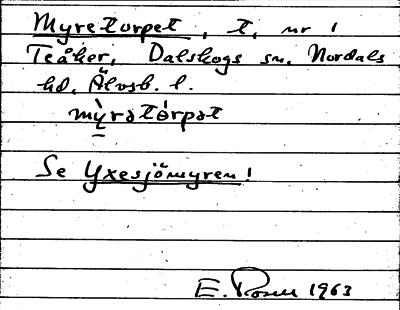 Myretorpet, t. nr 1
Teåker, Dalskogs sn. Nordals
hd. Älvsb. l.
mỳ̱rətórpət
Se Yxesjömyren!
E. Rosell 1963